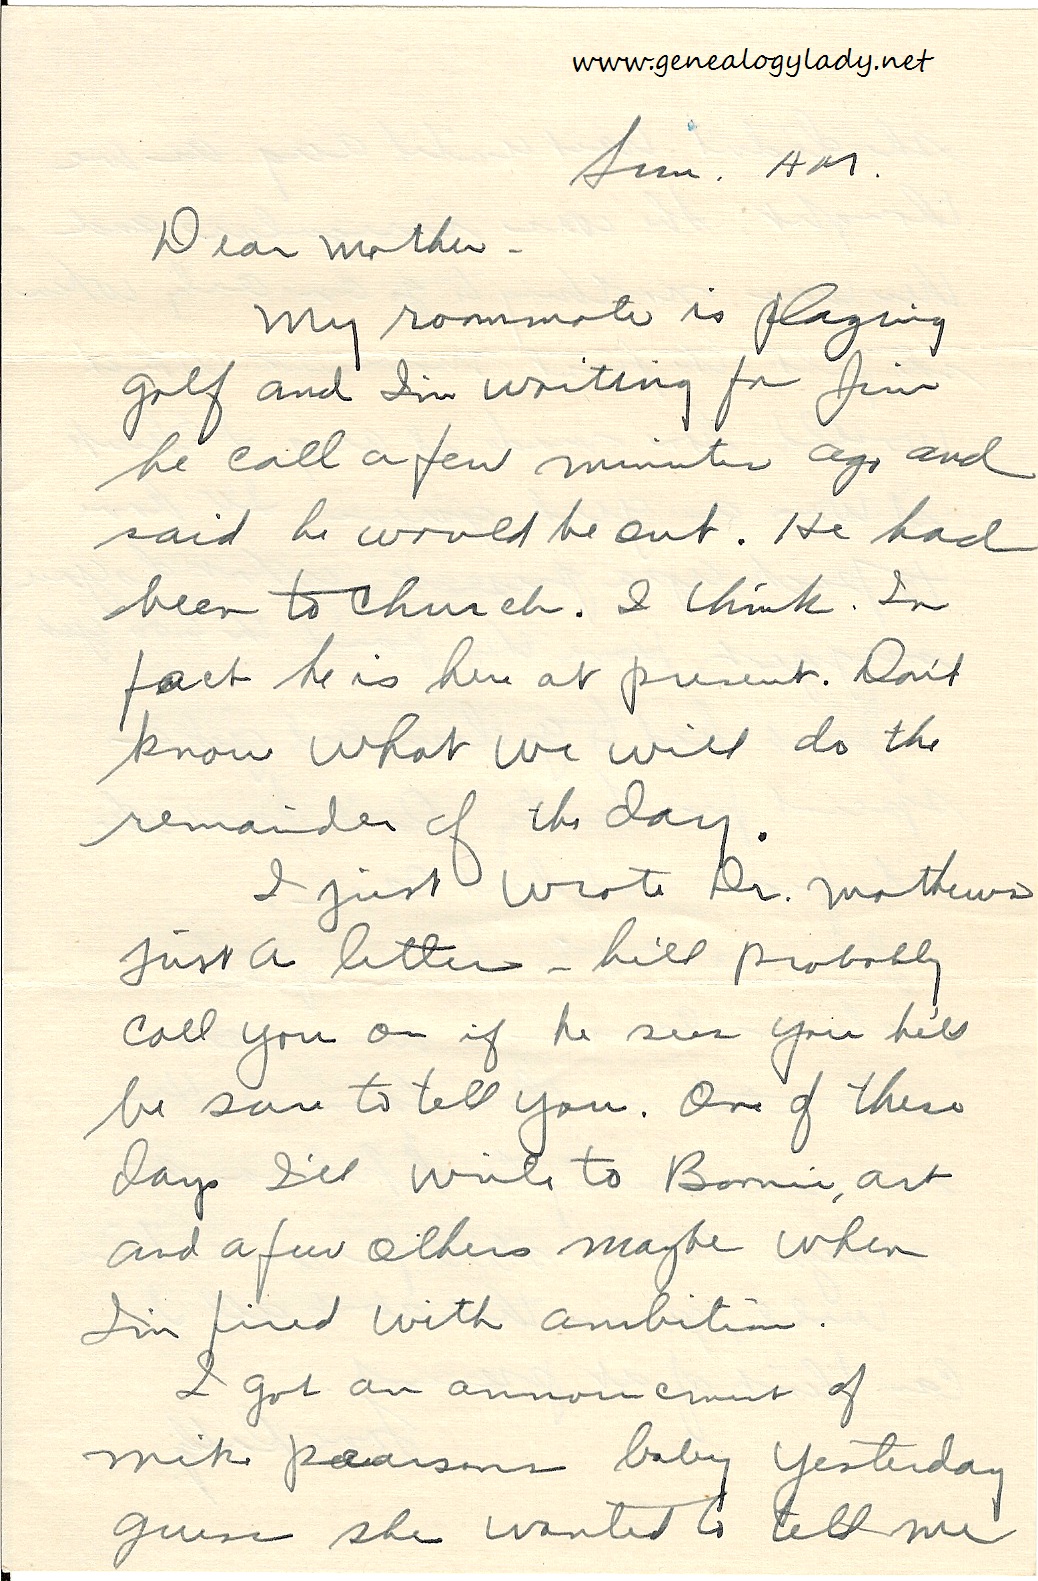 www.genealogylady.net
Sun. AM.
Dear Mother -
My roommate is playing
golf and I'm writing for Jim
he call a few minutes ago and
said he would be out. He had
been to church. I think. In
fact he is here at present. Don't
know what we will do the
remainder of the day.
I just wrote Dr. Mathews
just a letter - he'll probably
call you or if he sees you he'll
be sure to tell you. One of these
days I'll write to Bonnie, art
and a few others maybe when
I'm fired with ambition.
I got an announcement of
Mike Pearsons baby yesterday
guess she wanted to tell me